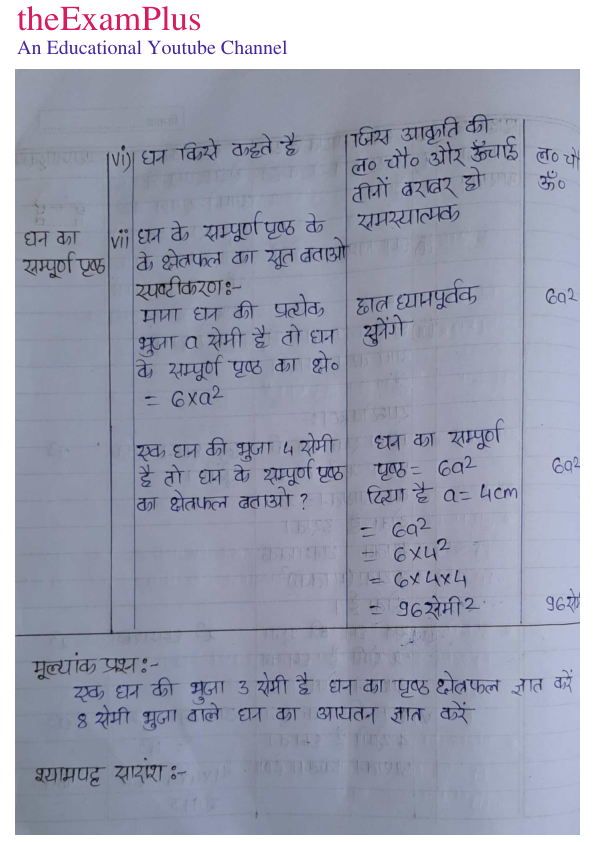 theExamPlus
An Educational Youtube Channel
vi) घन किसे कहते है
जिस आकृति की
ल० चौ० और ऊँचाई
तीनों बराबर हो
समस्यात्मक
ल० चौ
ऊँ०
घन का
सम्पूर्ण पृष्ठ
vii घन के सम्पूर्ण पृष्ठ के
के क्षेत्रफल का सूत्र बताओ
स्पष्टीकरण:-
माना घन की प्रत्येक
भुजा a सेमी है तो घन
के सम्पूर्ण पृष्ठ का क्षे०
= 6×a²
छात्र ध्यानपूर्वक
सुनेंगे
6a²
एक घन की भुजा 4 सेमी
है तो घन के सम्पूर्ण पृष्ठ
का क्षेत्रफल बताओ ?
घन का सम्पूर्ण
पृष्ठ = 6a²
दिया है a = 4cm
= 6a²
= 6×4²
= 6×4×4
= 96 सेमी²
6a²
96 से
मूल्यांक प्रश्न:-
एक घन की भुजा 3 सेमी है घन का पृष्ठ क्षेत्रफल ज्ञात करें
8 सेमी भुजा वाले घन का आयतन ज्ञात करें
श्यामपट्ट सारांश:-